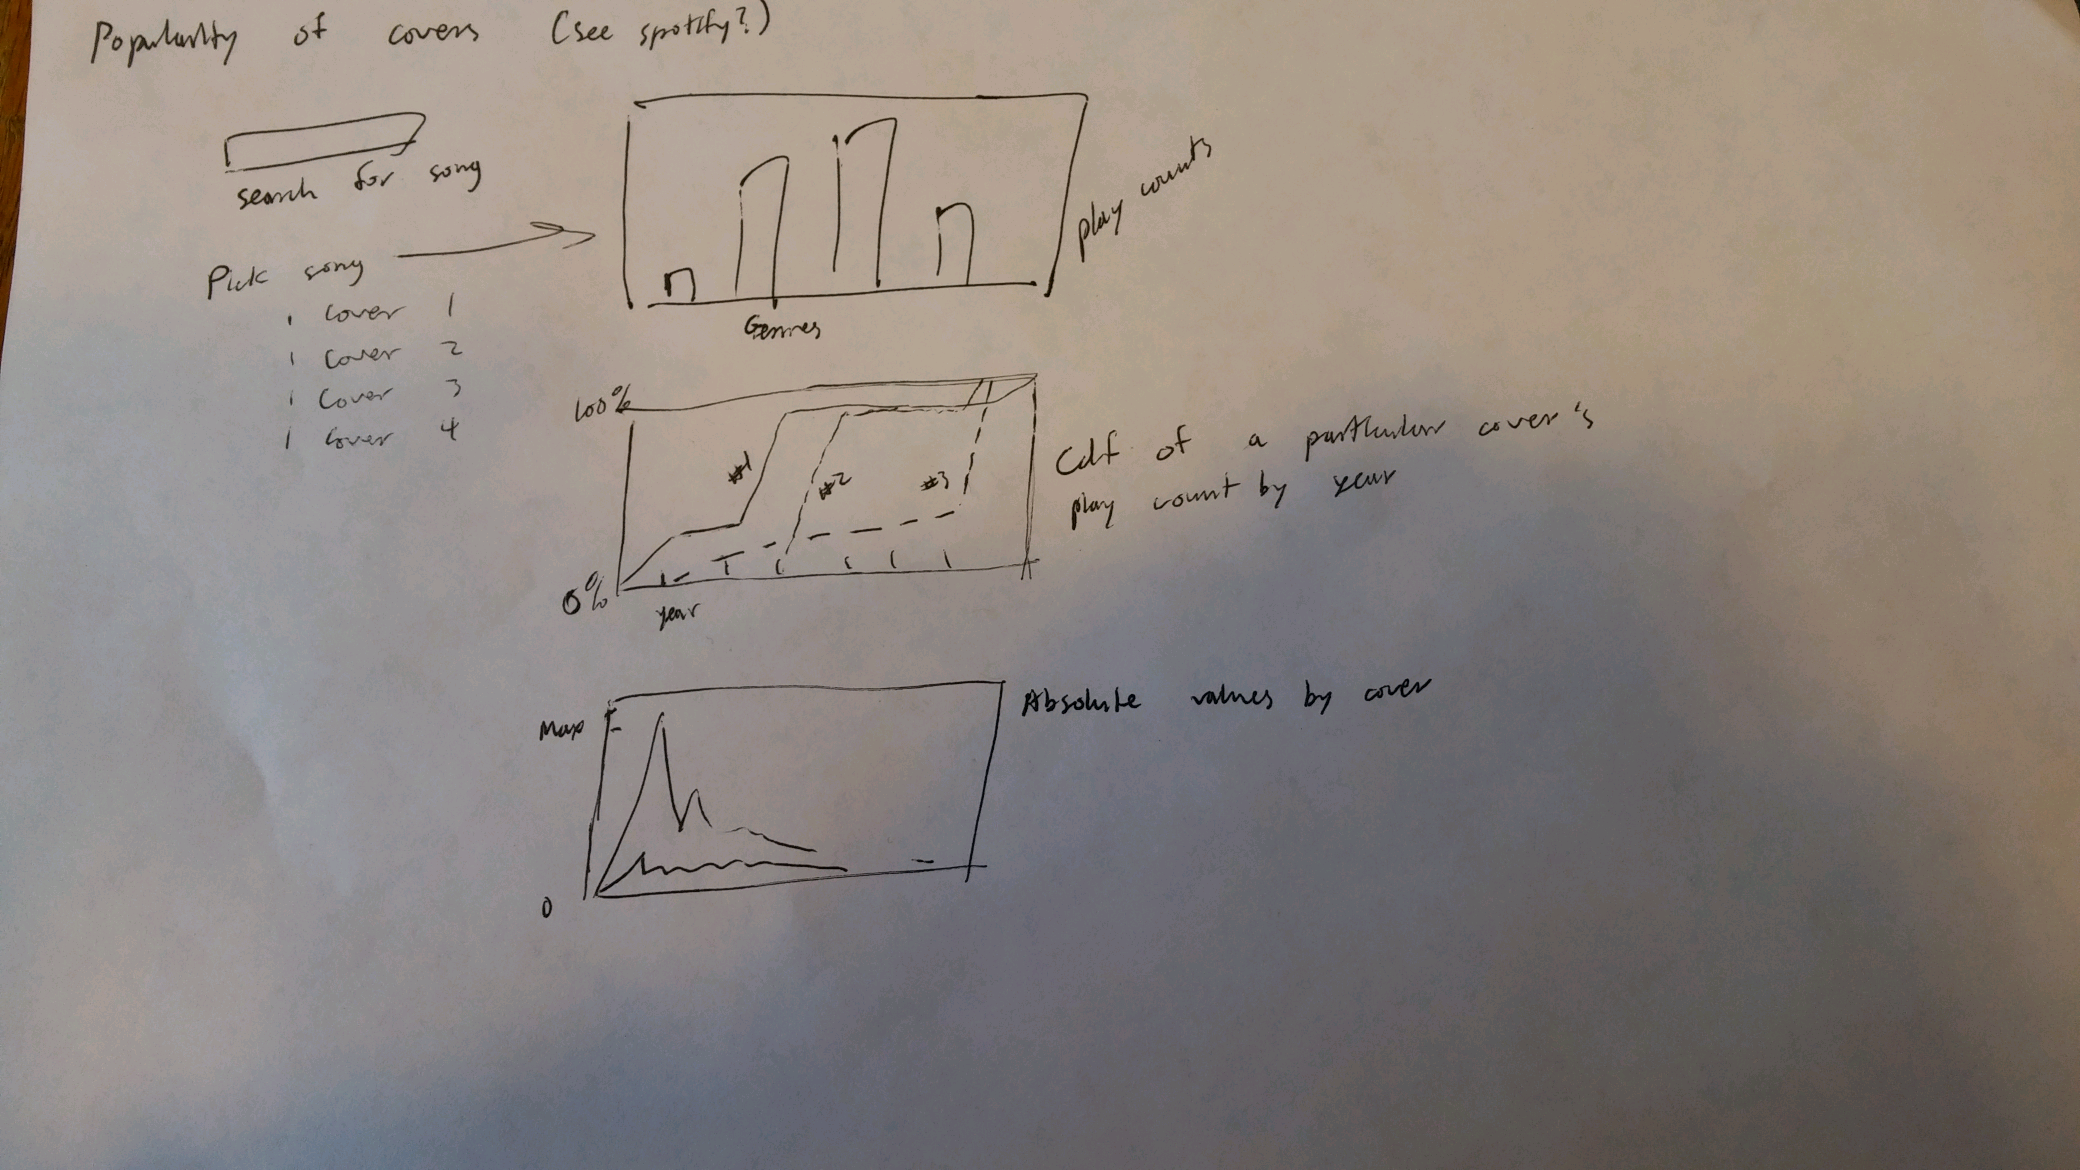 Popularity of covers (see spotify?)
search for song
Pick song
cover 1
cover 2
cover 3
cover 4
play counts
Genres
100%
#1
#2
#3
0%
year
Cdf of a particular cover's
play count by year
Max
0
Absolute values by cover